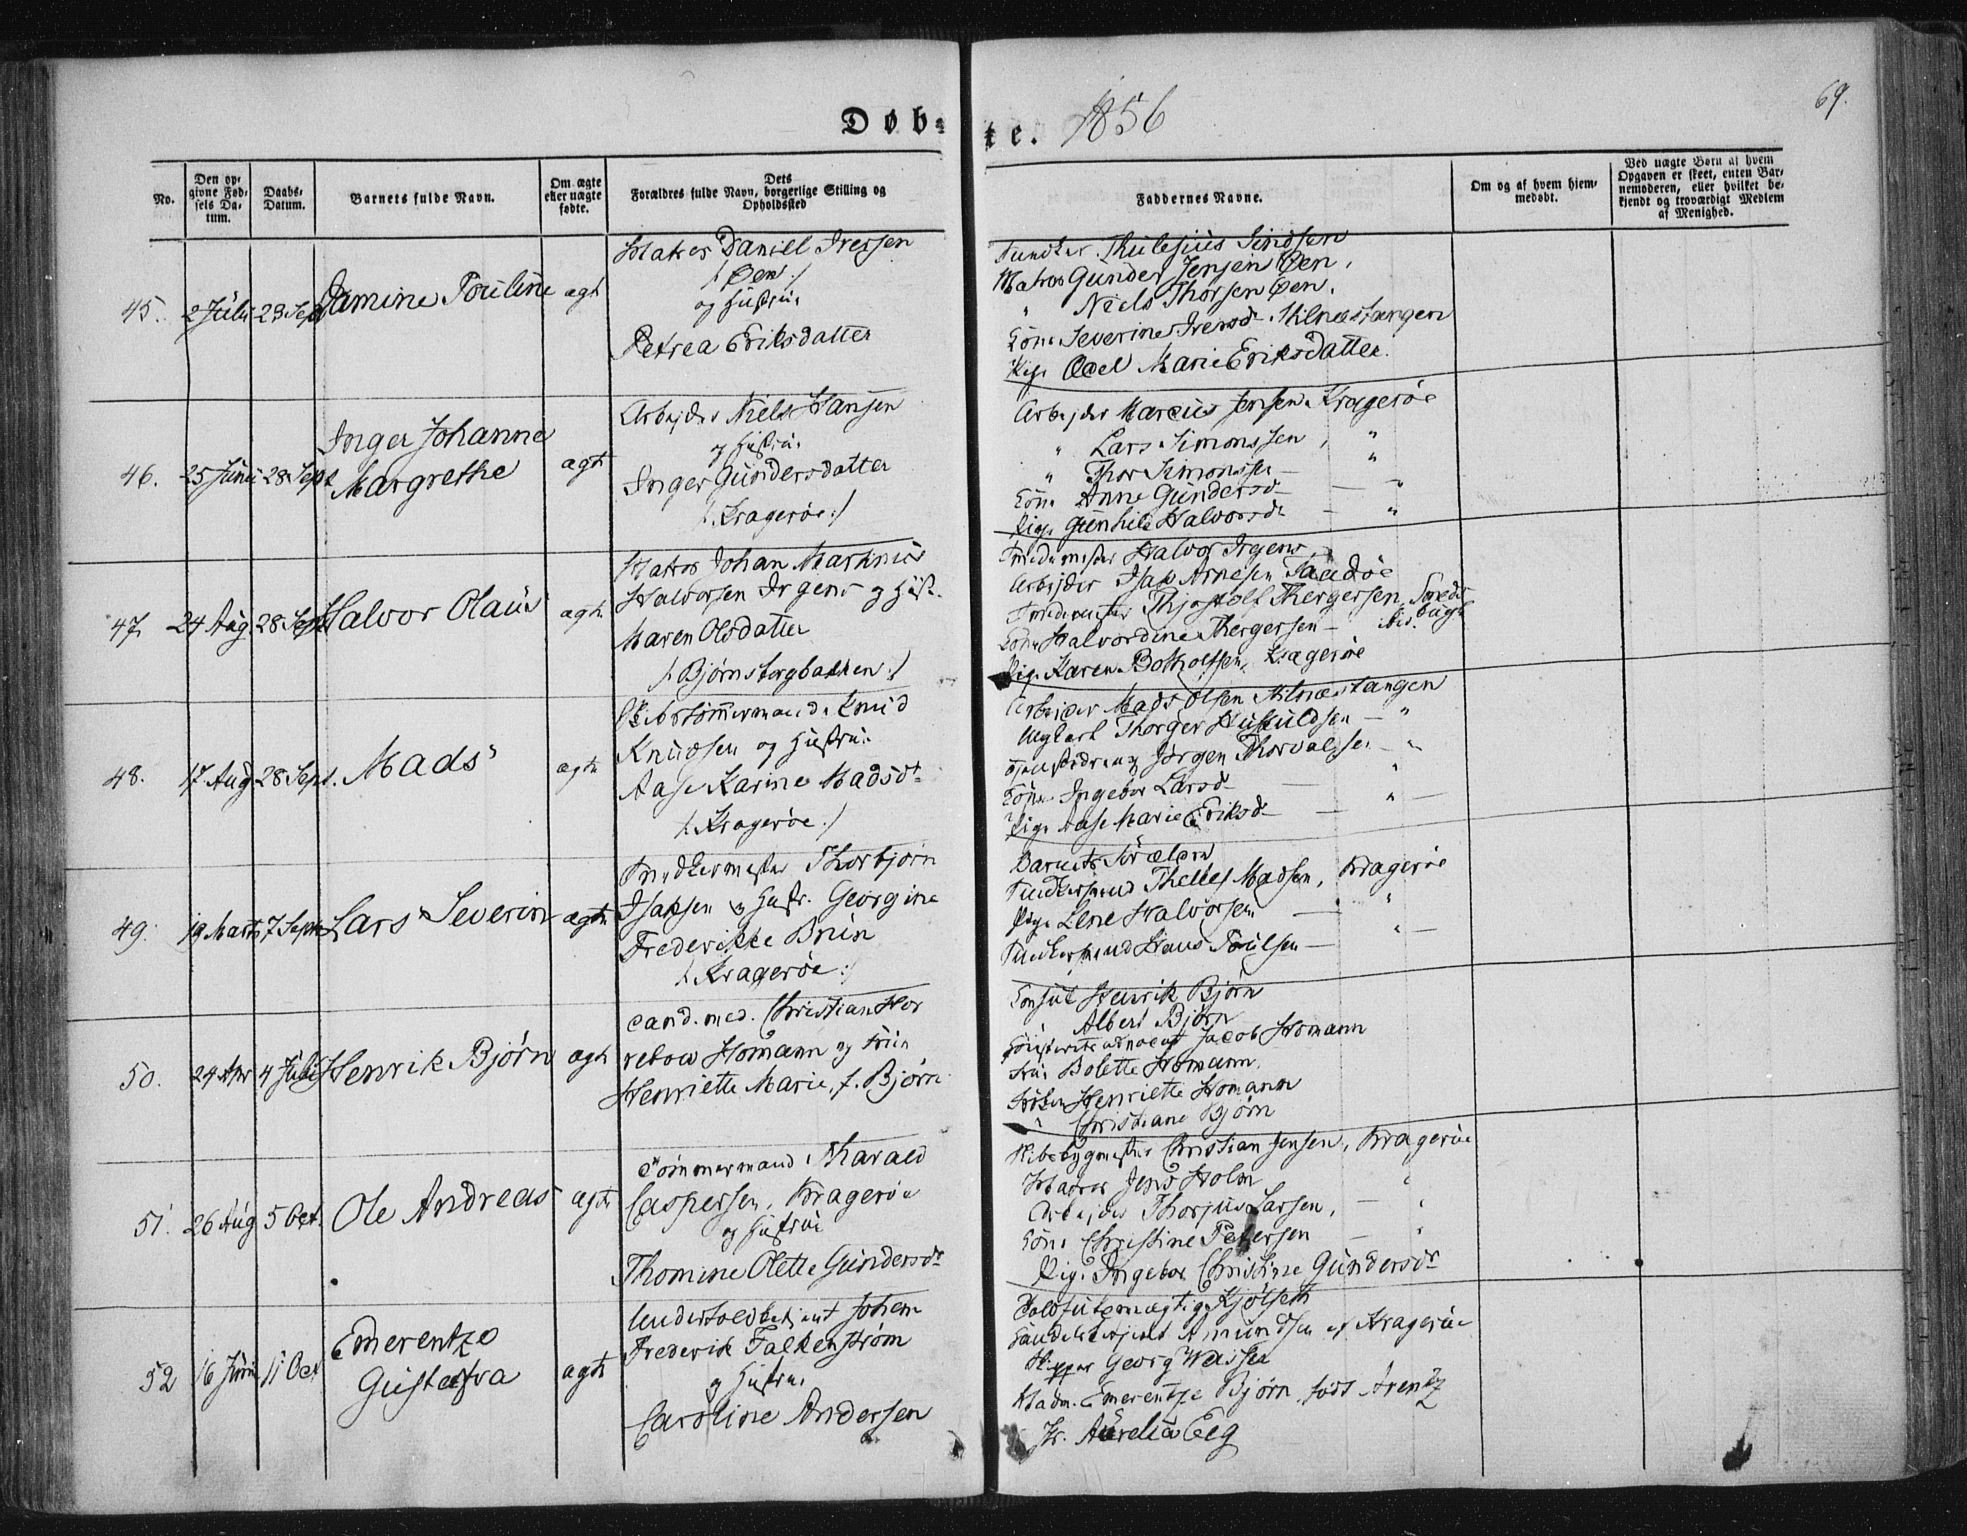 Døb=
te. 1856
69.
No.
Den op=
givne Fød=
sels Da=
tum.
Daabs=
Datum.
Barnets fulde Navn.
Om ægte
eller uægte
fødte.
Dets
Forældres fulde Navn, borgerlige Stilling og
Opholdssted
Faddernes Navne.
Om og af hvem hjem=
medøbt.
Ved uægte Børn af hvem
Opgaven er skeet, enten Bar=
nemoderen, eller hvilket be=
kjendt og troværdigt Medlem
af Menighed.
45. 2 Juli 28 Sept Jamine Pouline ægt
Matros Daniel Iversen
/: Øen :/
og Hustrue
Petrea Eriksdatter
Matros Gunder Jensen Øen,
" Niels Thorsen Øen.
Kone Severine Iversd.
Pige Marie Eriksdatter.
46. 25 Juni 28 Sept Inger Johanne
Margrethe
ægte
Arbejder Niels Hansen
og Hustrue
Inger Gundersdatter
/: Kragerøe :/
Arbejder Marcus Jensen Kragerøe
" Lars Simonssen, "
" Thor Simonssen — "
Kone Anne Gundersd — — "
Pige Gunhild Halvorsd — "
47. 24 Aug. 28 Sept Halvor Olaus ægte
Matros Johan Martinius
Halvorsen Irgens og Hust.
Maren Olsdatter
/: Bjørnsbergbakken :/
Smedemester Halvor Irgens
Arbejder Isak Arnesen
Smedemester Thjostolf Thergersen
Kone Halvordine Thergersen —
Pige Karen Botholfsen, Kragerøe
48. 17 Aug 28 Sept. Mads ægte
Skibstømmermand Knud
Knudsen og Hustrue
Aase Karine Madsdt.
/: Kragerøe :/
Arbejder Mads Olsen
Ungkarl Thorger — "
Tjenestedreng Jørgen Thorvaldsen — "
Kone Ingebor Larsd — "
Pige Aase Marie Eriksd — " —
49. 19 Marts 7 Sept Lars Severin ægte
Snedkermester Thorbjørn
Isaksen og Hustr. Georgine
Frederikke Brun
/: Kragerøe :/
Barnets Forældre
Snedkersvend Thelles Madsen, Kragerøe
Pige Lene Halvorsen — "
Snedkersvend Hans Poulsen — " —
50. 24 Apr 4 Juli Henrik Bjørn ægte
Cand. med. Christian Hor
rebow Homann og Frue
Henriette Marie, f. Bjørn
Consul Henrik Bjørn
Albert Bjørn
Jacob Homann
Frue Bolette Homann
Frøken Henriette Homann
" Christiane Bjørn
51. 26 Aug 5 Oct. Ole Andreas ægte
Tømmermand Harald
Caspersen, Kragerøe
og Hustrue
Thomine Olette Gundersdt.
Skibsbygmester Christian Jensen, Kragerøe
Matros Jens Holm "
Arbejder Thorjus Larsen, — "
Kone Christine Petersen — "
Pige Ingebor Christine Gundersdt.
52 16 Juni 11 Oct Emerentze
Gustafva
ægte
Undertoldbetjent Johan
Frederik Falkenstrøm
og Hustrue
Caroline Andersen
Toldfuldmægtig Kjølseth
Handelsbetjent Amundsen af Kragerøe
Skipper Georg
Madm. Emerentze Bjørn, født Arentz
Fr. Aurelia Eeg